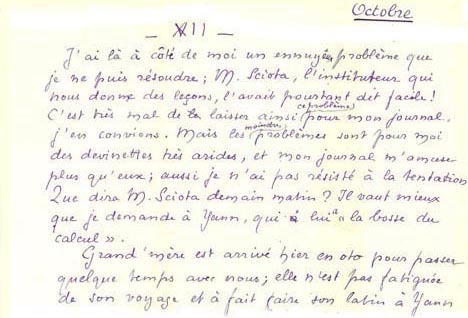 Octobre
— XII —
J'ai là à côté de moi un ennuyeux problème que
je ne puis résoudre ; M. Sciota, l'instituteur qui
nous donne des leçons, l'avait pourtant dit facile !
C'est très mal de laisser ainsi ce problème pour mon journal,
j'en conviens. Mais les moindres problèmes sont pour moi
des devinettes très arides, et mon journal m'amuse
plus qu'eux ; aussi je n'ai pas résisté à la tentation
Que dira M. Sciota demain matin ? Il vaut mieux
que je demande à Yann, qui lui a "la bosse du
calcul ».
Grand'mère est arrivé hier en oto pour passer
quelque temps avec nous ; elle n'est pas fatiguée
de son voyage et à fait faire son latin à Yann